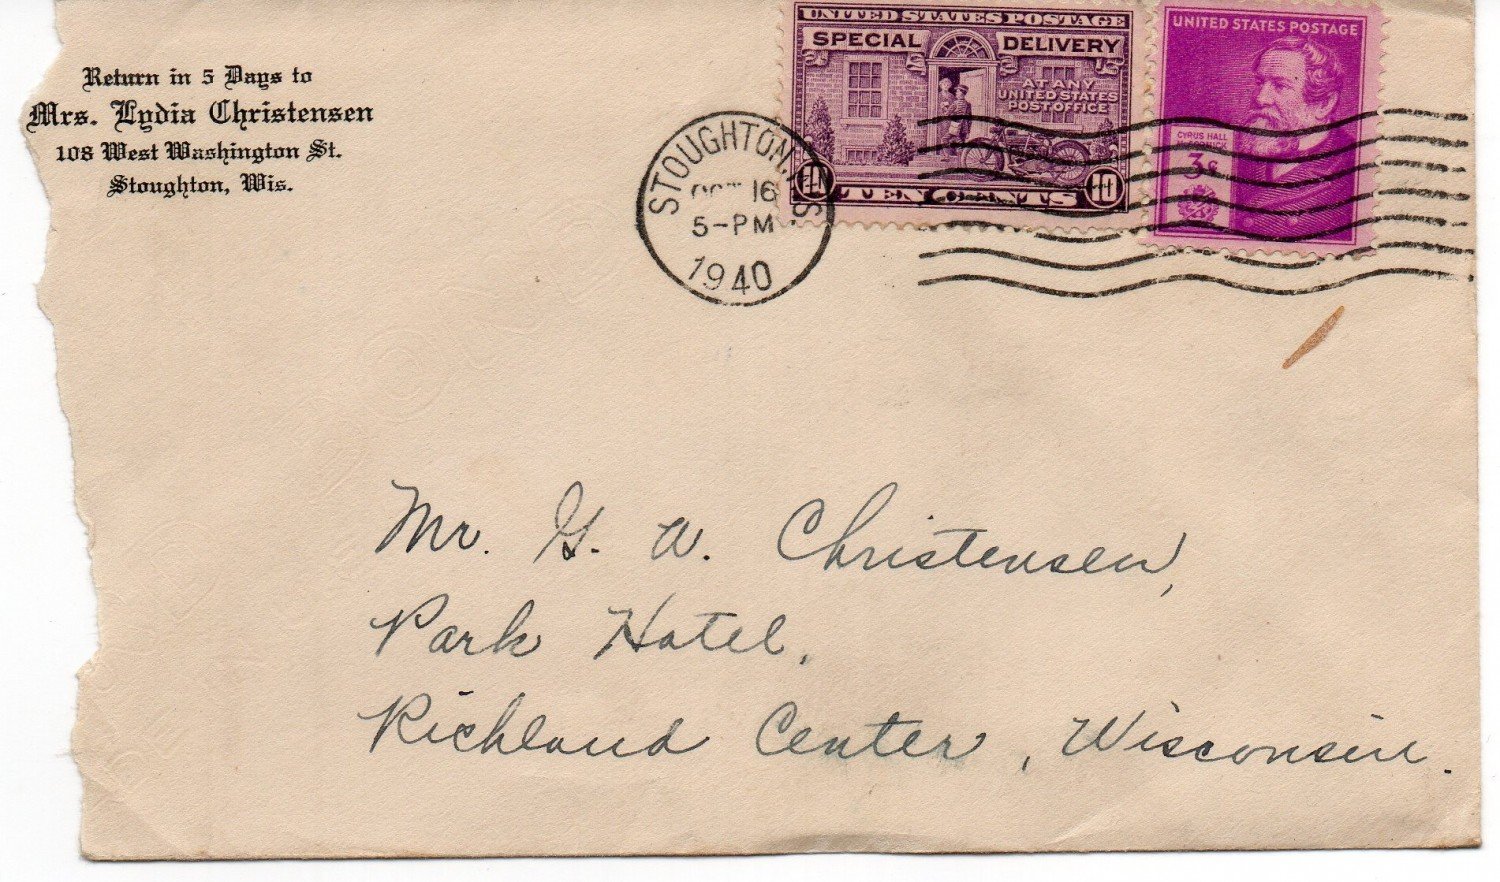 Return in 5 Days to
Mrs. Lydia Christensen
108 West Washington St.
Stoughton, Wis.
UNITED STATES POSTAGE
SPECIAL DELIVERY
AT ANY
UNITED STATES
POST OFFICE
10 TEN CENTS 10
UNITED STATES POSTAGE
CYRUS HALL
3¢
STOUGHTON, WIS.
OCT 16
5-PM
1940
Mr. G. W. Christensen,
Park Hotel,
Richland Center, Wisconsin.